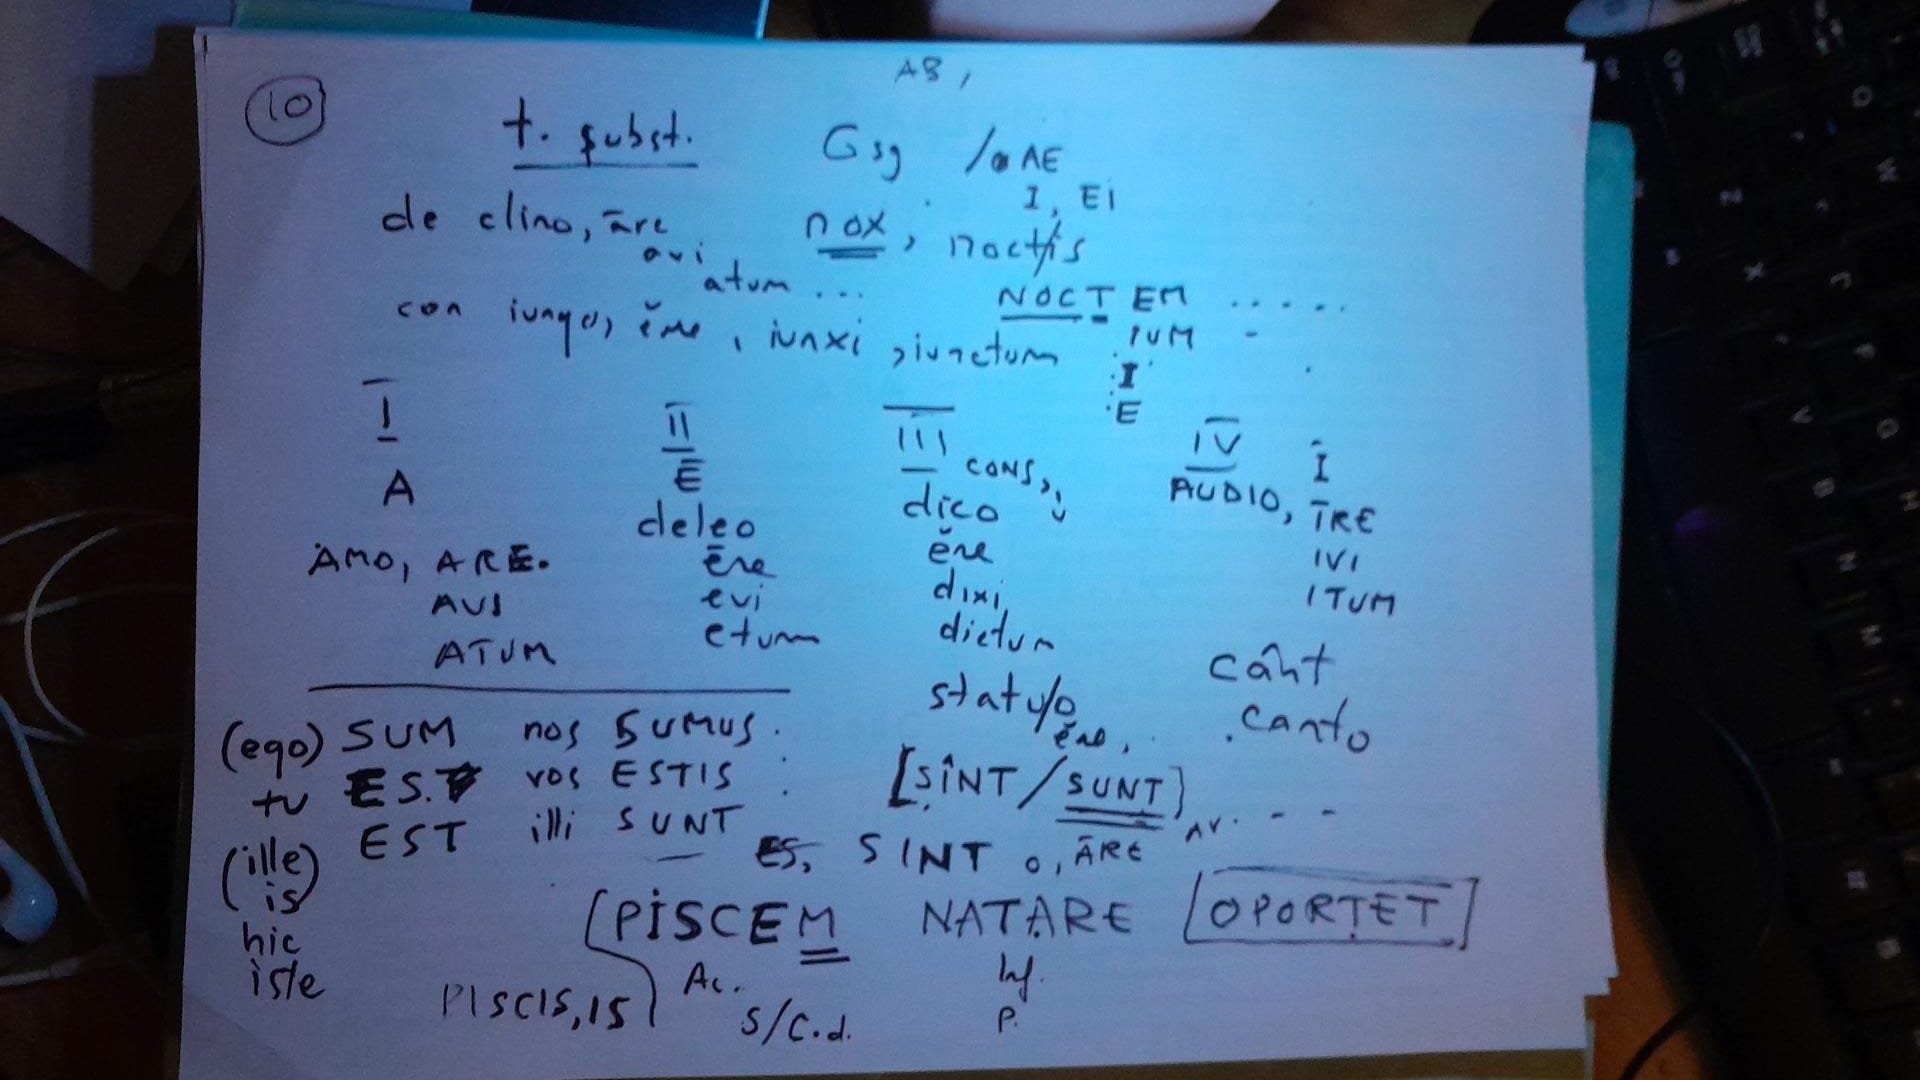 AB,
10
t. subst. Gsg /AE
I, EI
de clino, āre nox, noct/is
avi
atum ...
NOCT EM .....
con iungo, ĕre, iunxi, iunctum IUM -
I
E
I II III IV Ī
A Ē CONS, AUDIO, ĪRE
deleo dico
AMO, ARE. ēre ĕre IVI
AVI evi dixi, ITUM
ATUM etum dictum
cânt
statu/o canto
ĕre,
(ego) SUM nos SUMUS.
tu ES. vos ESTIS [SÎNT/SUNT]
(ille) EST illi SUNT ES, SINT o, ĀRE AV. - -
is
hic [PISCEM NATARE [OPORTET]
iste Ac. Inf.
PISCIS, IS S/C.d. P.